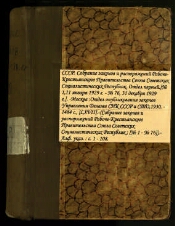 СССР. Собрание законов и распоряжений Рабоче-
Крестьянского Правительства Союза Советских
Социалистических Республик. Отдел первый. [№
1, 21 января 1929 г. - № 76, 31 декабря 1929
г.]. -Москва: Отдел опубликования законов
Управления Делами СНК СССР и СТО, 1930.-
(Собрание законов и
распоряжений Рабоче-Крестьянского
Правительства Союза Советских
Социалистических Республик; [№ 1 - № 76]).-
Алф. указ.: с. 1 - 108.